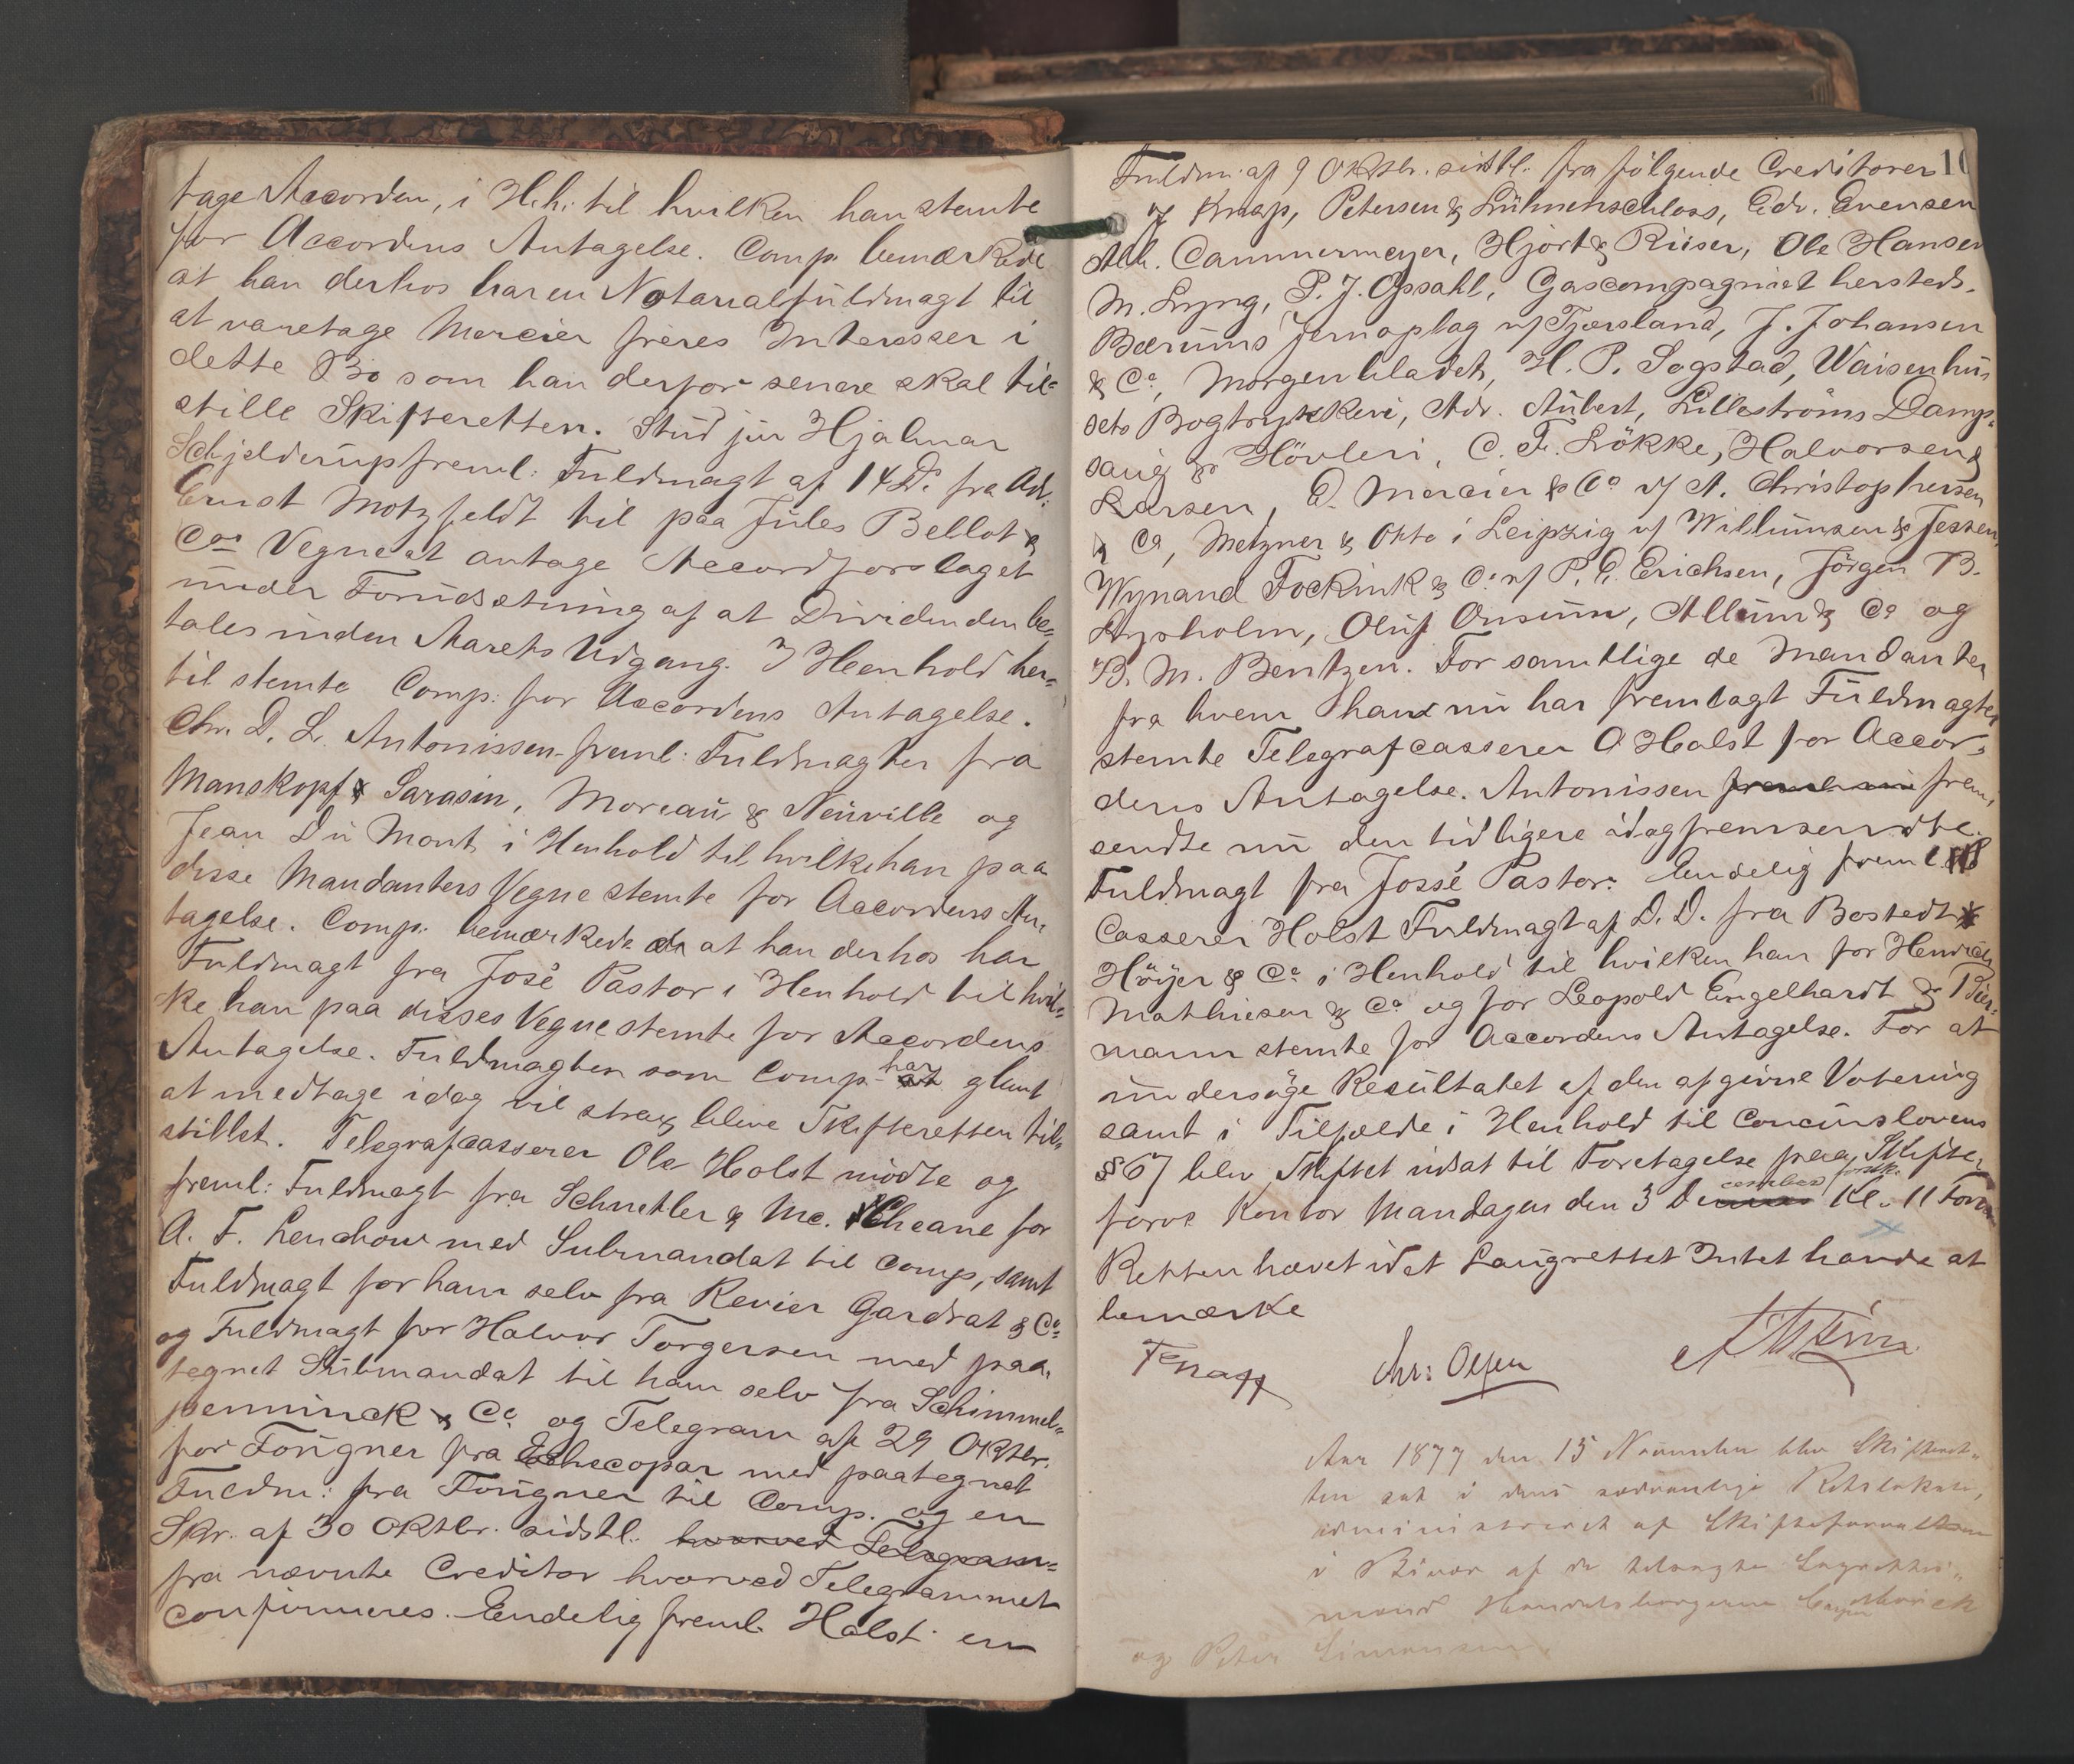 tage Accorden, i H. h. til hvilken han stemte
for Accordens Antagelse. Comp. bemærkede
at han derhos har en Notarialfuldmagt til
at varetage Mercier fréres Interesser i
dette Bo som han derfor senere skal til=
stille Skifteretten. Stud jur Hjalmar
Schjelderup freml: Fuldmagt af 14 D. fra Adv.
Ernst Motzfeldt til paa Jules Bellot &
Cos Vegne at antage Accordforslaget
under Forudsætning af at Dividenden be=
tales inden Aarets Udgang. I Henhold her=
til stemte Comp: for Accordens Antagelse.
Chr. D. L. Antonissen freml: Fuldmagter fra
Manskopf & Sarasin, Moreau & Neuville og
Jean Du Mont i Henhold til hvilke han paa
disse Mandanters Vegne stemte for Accordens An=
tagelse. Comp. bemærkede at han derhos har
Fuldmagt fra José Pastor i Henhold til hvil=
ke han paa disses Vegne stemte for Accordens
Antagelse. Fuldmagten som Comp. har glemt
at medtage idag vil strax blive Skifteretten til=
stillet. Telegrafcasserer Ole Holst mödte og
freml: Fuldmagt fra Schnetler & Mc. Cheane for
A. F. Lenchow med Submandat til Comp, samt
Fuldmagt for ham selv fra Revier Gardrat & Co=
og Fuldmagt for Halvor Torgersen med paa=
tegnet Submandat til ham selv fra Schimmel=
penninck & Co og Telegram af 29 Oktbr.
for Fougner fra Echecopar med paategnet
Fuldm: fra Fougner til Comp. og en
Skr. af 30 Oktbr. sidstl. hvorved Telegram=
fra nævnte Creditor hvorved Telegrammet
confirmeres. Endelig freml. Holst en
Fuldm. af 9 Oktbr. sidstl. fra fölgende Creditorer 10
J Knap, Petersen & Lühnenschloss, Edv. Evensen
Alb. Cammermeyer, Hjort & Riiser, Ole Hansen
M. Lyng, P. J. Opsahl, Gascompagniet hersteds.
Bærums Jernoplag v/ Fjærsland, J. Johansen
& Co, Morgenbladet, H. P. Sogstad, Waisenhu=
sets Bogtrykkeri, Adr. Aubert, Lilleströms Damp=
saug & Hövleri, C. F. Lökke, Halvorsen &
Larsen, D. Mercier & Co v/ A. Christophersen
& Co, Metzner & Otto i Leipzig v/ Willumsen & Jessen,
Wynand Fockink & Co v/ P. C. Erichsen, Jörgen B.
Lysholm, Oluf Onsum, Allum & Co og
B. M. Bentzen. For samtlige de Mandanter
fra hvem han nu har fremlagt Fuldmagter
stemte Telegrafcasserer O Holst for Accor=
dens Antagelse. Antonissen freml. nu frem=
sendte nu den tidligere idag fremsendte
Fuldmagt fra José Pastor. Endelig freml.
Casserer Holst Fuldmagt af D. D. fra Bostedt
Höyer & Co i Henhold til hvilken han for Hendrich
Mathiesen & Co og for Leopold Engelhardt & Bier=
mann stemte for Accordens Antagelse. For at
undersöge Resultatet af den afgivne Votering
samt i Tilfælde i Henhold til Concurslovens
§ 67 blev Skiftet udsat til Foretagelse paa Skifte=
forvs Kontor Mandagen den 3 December förstk. Kl. 11 Form
Retten hævet idet Laugrettet Intet havde at
bemærke
Chr: Olsen
Aar 1877 den 15 November blev Skifteret=
ten sat i dens sædvanlige Retslokale,
administreret af Skifteforvalteren
i Bivær af de tilsagte Lagrettes=
mænd Handelsborgerne
og Peter Simonsen